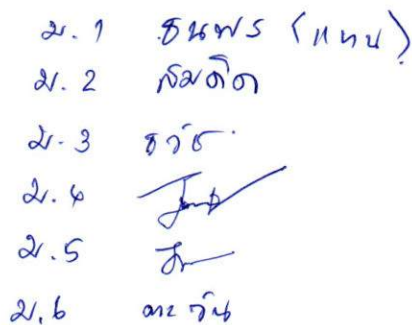 ม.1 ธนพร (แทน)
ม.2 สมคิด
ม.3 ธวัช
ม.4
ม.5
ม.6 ตะวัน